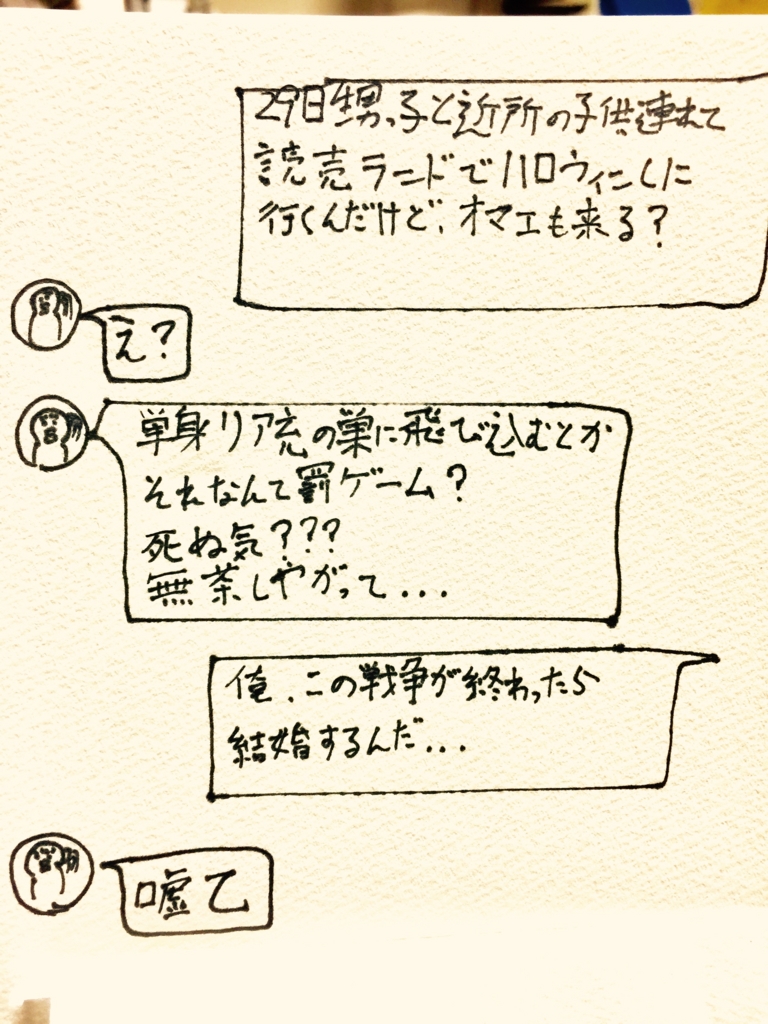 29日甥っ子と近所の子供連れて
読売ランドでハロウィンしに
行くんだけど、オマエも来る?
え?
単身リア充の巣に飛び込むとか
それなんて罰ゲーム?
死ぬ気???
無茶しやがって...
俺、この戦争が終わったら
結婚するんだ...
嘘乙